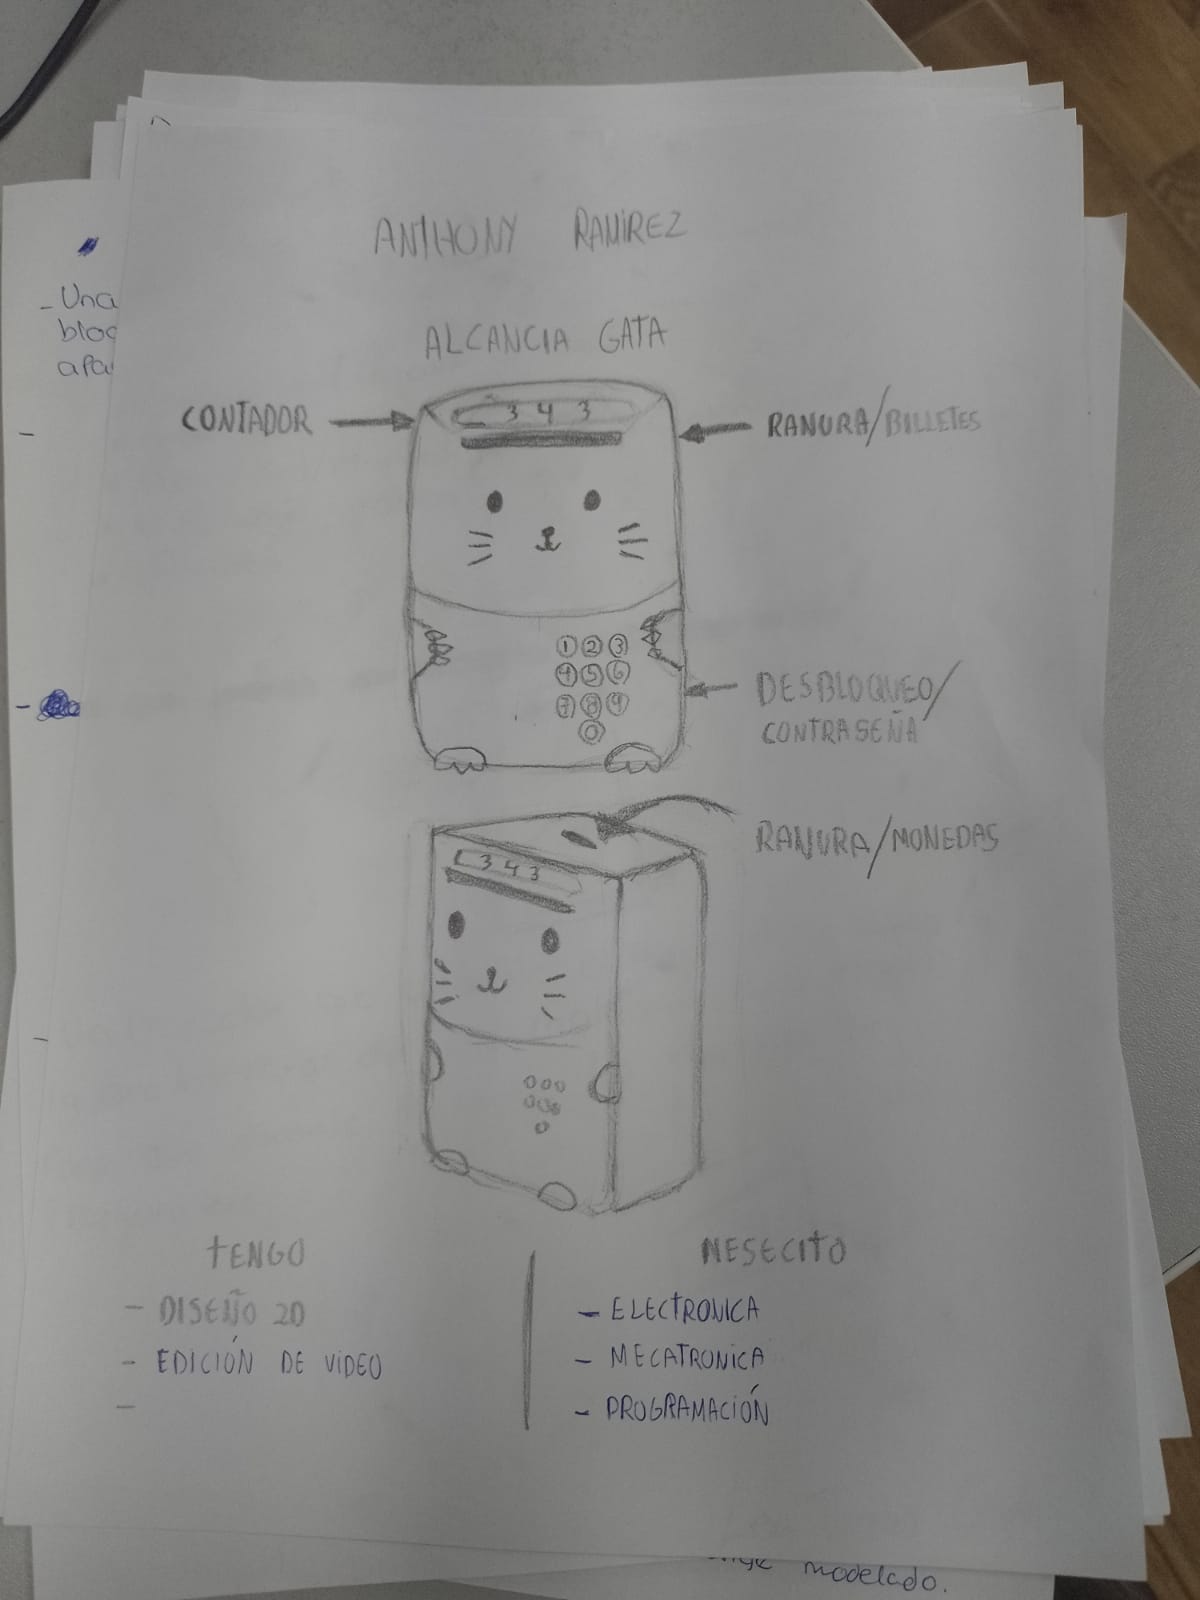 ANTHONY RAMIREZ
- Una
bloq
apa
ALCANCIA GATA
CONTADOR
343
RANURA/BILLETES
1 2 3
4 5 6
7 8 9
0
DESBLOQUEO/
CONTRASEÑA
RANURA/MONEDAS
343
TENGO
- DISEÑO 2D
- EDICIÓN DE VIDEO
-
NESECITO
- ELECTRONICA
- MECATRONICA
- PROGRAMACIÓN
modelado.